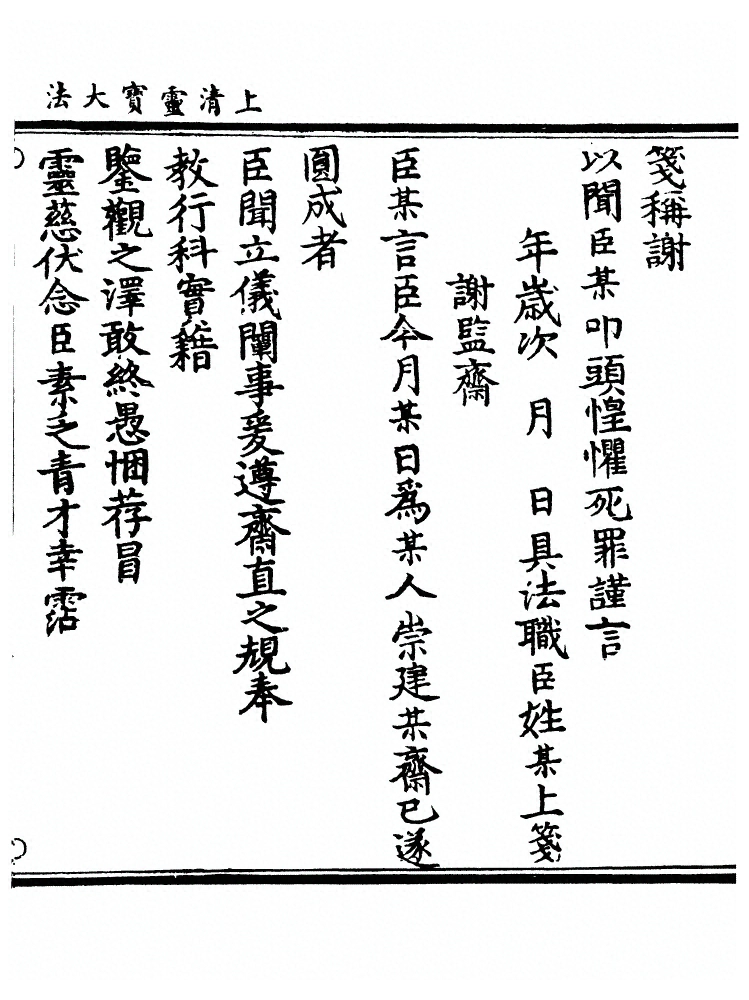 上清靈寶大法
箋稱謝
以聞臣某叩頭惶懼死罪謹言
年歲次　月　日具法職臣姓某上箋
謝監齋
臣某言臣今月某日爲某人崇建某齋已遂
圓成者
臣聞立儀闡事爰遵齋直之規奉
教行科實藉
鑒觀之澤敢終愚悃荐冒
靈慈伏念臣素乏青才幸霑